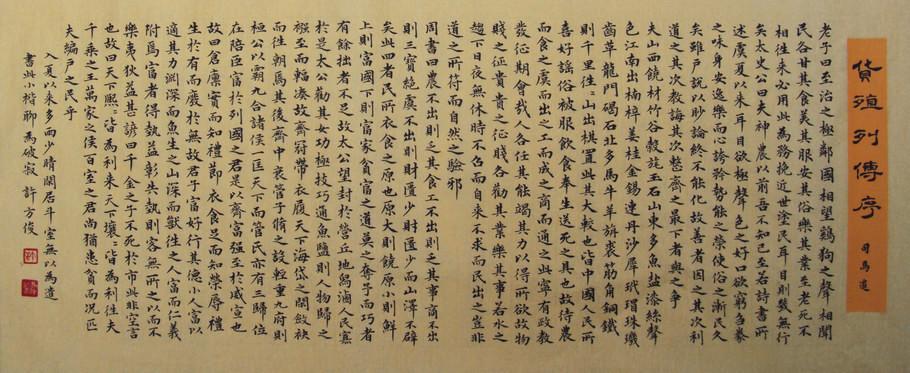 貨殖列傳序
司馬遷
老子曰至治之極鄰國相望鷄狗之聲相聞
民各甘其食美其服安其俗樂其業至老死不
相往来必用此為務挽近世塗民耳目則幾無行
矣太史公曰夫神農以前吾不知已至若詩書所
述虞夏以来耳目欲極聲色之好口欲窮芻豢
之味身安逸樂而心誇矜勢能之榮使俗之漸民久
矣雖戶說以眇論終不能化故善者因之其次利
道之其次教誨其次整齊之最下者與之爭
夫山西饒材竹谷旄玉石山東多魚鹽漆絲聲
色江南出楠梓薑桂金錫連丹沙犀玳瑁珠璣
齒革龍門碣石北多馬牛羊旃裘筋角銅鐵
則千里往々山出棋置此其大較也皆中國人民所
喜好謠俗被服飲食奉生送死之具也故待農
而食之虞而出之工而成之商而通之此寧有政教
發征期會哉人各任其能竭其力以得所欲故物
賤之征貴貴之征賤各勸其業樂其事若水之
趨下日夜無休時不召而自来不求而民出之豈非
道之所符而自然之驗邪
周書曰農不出則乏其食工不出則乏其事商不出
則三寶絶虞不出則財匱少財匱少而山澤不辟
矣此四者民所衣食之原也原大則饒原小則鮮
上則富國下則富家貧富之道莫之奪予而巧者
有餘拙者不足故太公望封於營丘地舄滷人民寡
於是太公勸其女功極技巧通魚鹽則人物歸之
繈至而輻湊故齊冠帶衣履天下海岱之間斂袂
而往朝焉其後齊中衰管子脩之設輕重九府則
桓公以霸九合諸侯一匡天下而管氏亦有三歸位
在陪臣富於列國之君是以齊富强至於威宣也
故曰倉廩實而知禮節衣食足而知榮辱禮
生於有而廢於無故君子富好行其德小人富以
適其力淵深而魚生之山深而獸往之人富而仁義
附焉富者得埶益彰失埶則客無所之以而不
樂夷狄益甚諺曰千金之子不死於市此非空言
也故曰天下熙々皆為利来天下壤々皆為利往夫
千乘之王萬家之侯百室之君尚猶患貧而況匹
夫編戶之民乎
入夏以来多雨少晴閑居斗室無以為遣
書此小楷聊為破寂 許方俊